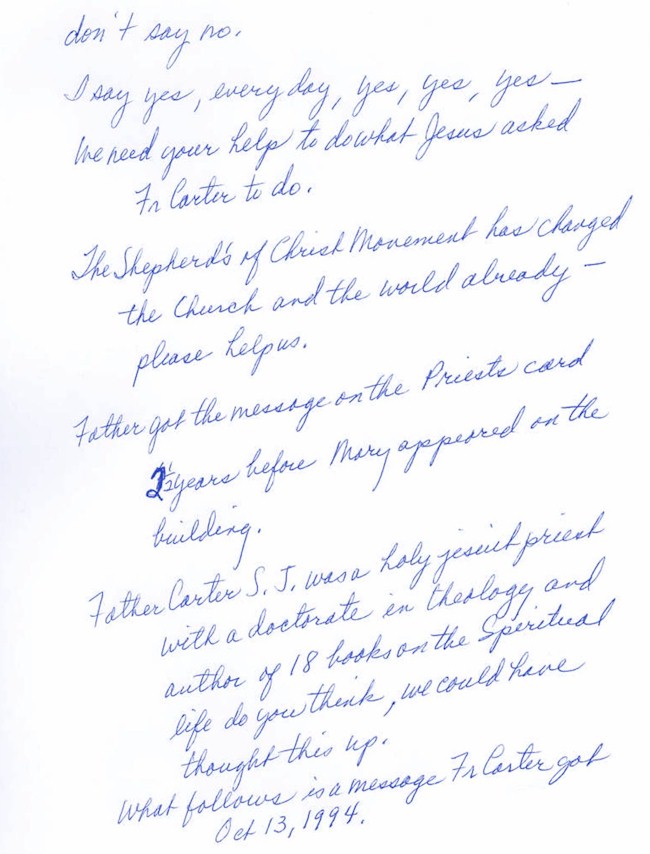 don't say no.
I say yes, every day, yes, yes, yes—
We need your help to do what Jesus asked
Fr Carter to do.
The Shepherd's of Christ Movement has changed
the Church and the world already —
please help us.
Father got the message on the Priests card
2 1/2 years before Mary appeared on the
building.
Father Carter S. J. was a holy jesuit priest
with a doctorate in theology and
author of 18 books on the Spiritual
life do you think, we could have
thought this up.
What follows is a message Fr Carter got
Oct 13, 1994.